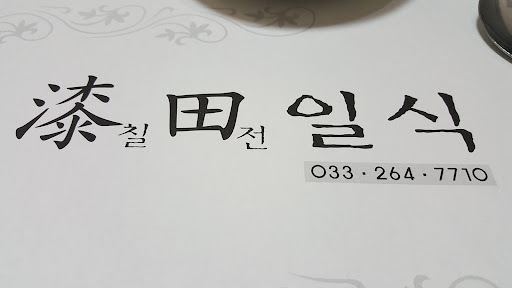 漆칠 田전 일식
033·264·7710